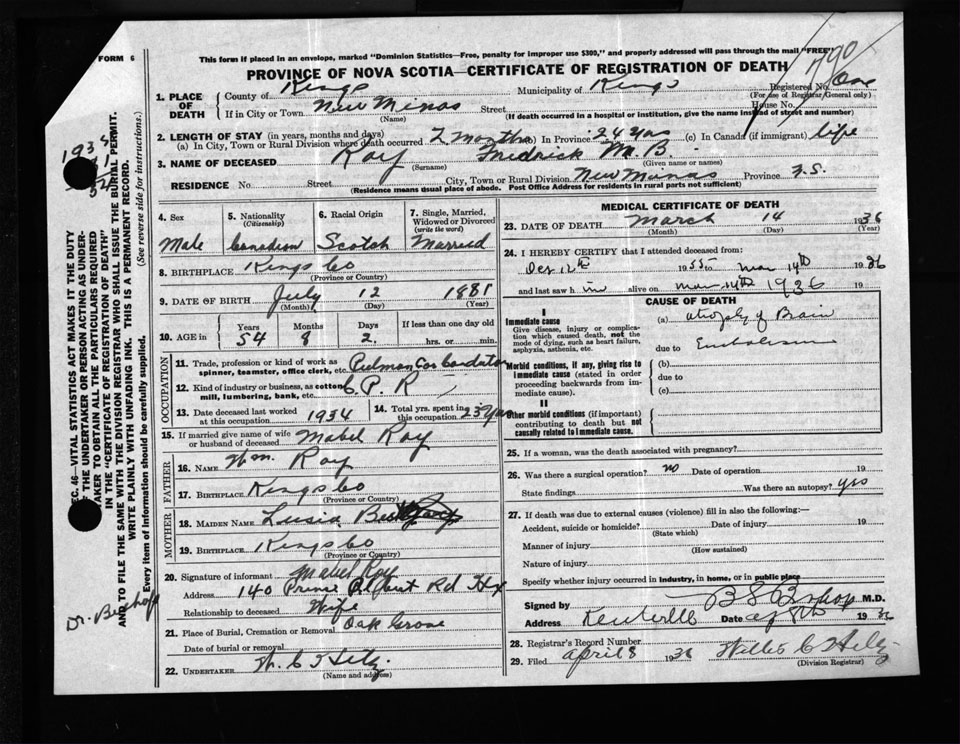 FORM 6
This form if placed in an envelope, marked "Dominion Statistics—Free, penalty for improper use $300," and properly addressed will pass through the mail "FREE"
PROVINCE OF NOVA SCOTIA—CERTIFICATE OF REGISTRATION OF DEATH
790
1. PLACE OF DEATH County of Kings Municipality of Kings Registered No. One
(For use of Registrar General only)
If in City or Town New Minas Street House No.
(Name) (If death occurred in a hospital or institution, give the name instead of street and number)
2. LENGTH OF STAY (in years, months and days)
(a) In City, Town or Rural Division where death occurred 2 Months (b) In Province 24 yrs (c) In Canada (if immigrant) life
3. NAME OF DECEASED Roy Fredrick M. B.
(Surname) (Given name or names)
RESIDENCE No. Street City, Town or Rural Division New Minas Province N.S.
(Residence means usual place of abode. Post Office Address for residents in rural parts not sufficient)
SEC. 46—VITAL STATISTICS ACT MAKES IT THE DUTY
OF THE UNDERTAKER OR PERSON ACTING AS UNDER-
TAKER TO OBTAIN ALL THE PARTICULARS REQUIRED
IN THE "CERTIFICATE OF REGISTRATION OF DEATH"
AND TO FILE THE SAME WITH THE DIVISION REGISTRAR WHO SHALL ISSUE THE BURIAL PERMIT.
WRITE PLAINLY WITH UNFADING INK. THIS IS A PERMANENT RECORD.
Every item of Information should be carefully supplied. (See reverse side for instructions.)
Dr. Bishop
4. Sex 5. Nationality (Citizenship) 6. Racial Origin 7. Single, Married, Widowed or Divorced (write the word)
Male Canadian Scotch Married
8. BIRTHPLACE Kings Co
(Province or Country)
9. DATE OF BIRTH July 12 1881
(Month) (Day) (Year)
10. AGE in Years Months Days If less than one day old
54 8 2. hrs. or min.
OCCUPATION
11. Trade, profession or kind of work as spinner, teamster, office clerk, etc. Pulman Car
12. Kind of industry or business, as cotton mill, lumbering, bank, etc. C. P. R
13. Date deceased last worked at this occupation 1934 14. Total yrs. spent in this occupation 23 yrs
15. If married give name of wife or husband of deceased Mabel Roy
FATHER
16. NAME Wm. Roy
17. BIRTHPLACE Kings Co
(Province or Country)
MOTHER
18. MAIDEN NAME
19. BIRTHPLACE Kings Co
(Province or Country)
20. Signature of informant Mabel Roy
Address 140 Prince Albert Rd Hx
Relationship to deceased Wife
21. Place of Burial, Cremation or Removal Oak Grove
Date of burial or removal
22. UNDERTAKER W. C. Hiltz.
(Name and address)
MEDICAL CERTIFICATE OF DEATH
23. DATE OF DEATH March 14 1936
(Month) (Day) (Year)
24. I HEREBY CERTIFY that I attended deceased from:
Dec 12th 1935 to Mar 14th 1936
and last saw h im alive on Mar 14th 1936 19
CAUSE OF DEATH
I
Immediate cause (a) atrophy of Brain
Give disease, injury or complication which caused death, not the mode of dying, such as heart failure, asphyxia, asthenia, etc.
due to Embolism
Morbid conditions, if any, giving rise to immediate cause (stated in order proceeding backwards from immediate cause).
(b)
due to
(c)
II
Other morbid conditions (if important) contributing to death but not causally related to immediate cause.
25. If a woman, was the death associated with pregnancy?
26. Was there a surgical operation? no Date of operation 19
State findings Was there an autopsy? yes
27. If death was due to external causes (violence) fill in also the following:—
Accident, suicide or homicide? Date of injury 19
(State which)
Manner of injury
(How sustained)
Nature of injury
Specify whether injury occurred in industry, in home, or in public place
Signed by B S Bishop M.D.
Address Kentville Date 19 36
28. Registrar's Record Number
29. Filed April 8 1936 Willis C Hiltz
(Division Registrar)